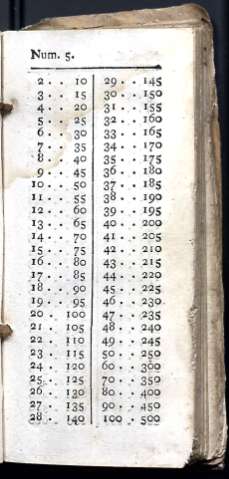 Num. 5.
2 . . 10 29 . . 145
3 . . 15 30 . . 150
4 . . 20 31 . . 155
5 . . 25 32 . . 160
6 . . 30 33 . . 165
7 . . 35 34 . . 170
8 . . 40 35 . . 175
9 . . 45 36 . . 180
10 . . 50 37 . . 185
11 . . 55 38 . . 190
12 . . 60 39 . . 195
13 . . 65 40 . . 200
14 . . 70 41 . . 205
15 . . 75 42 . . 210
16 . . 80 43 . . 215
17 . . 85 44 . . 220
18 . . 90 45 . . 225
19 . . 95 46 . . 230
20 . . 100 47 . . 235
21 . . 105 48 . . 240
22 . . 110 49 . . 245
23 . . 115 50 . . 250
24 . . 120 60 . . 300
25 . . 125 70 . . 350
26 . . 130 80 . . 400
27 . . 135 90 . . 450
28 . . 140 100 . . 500